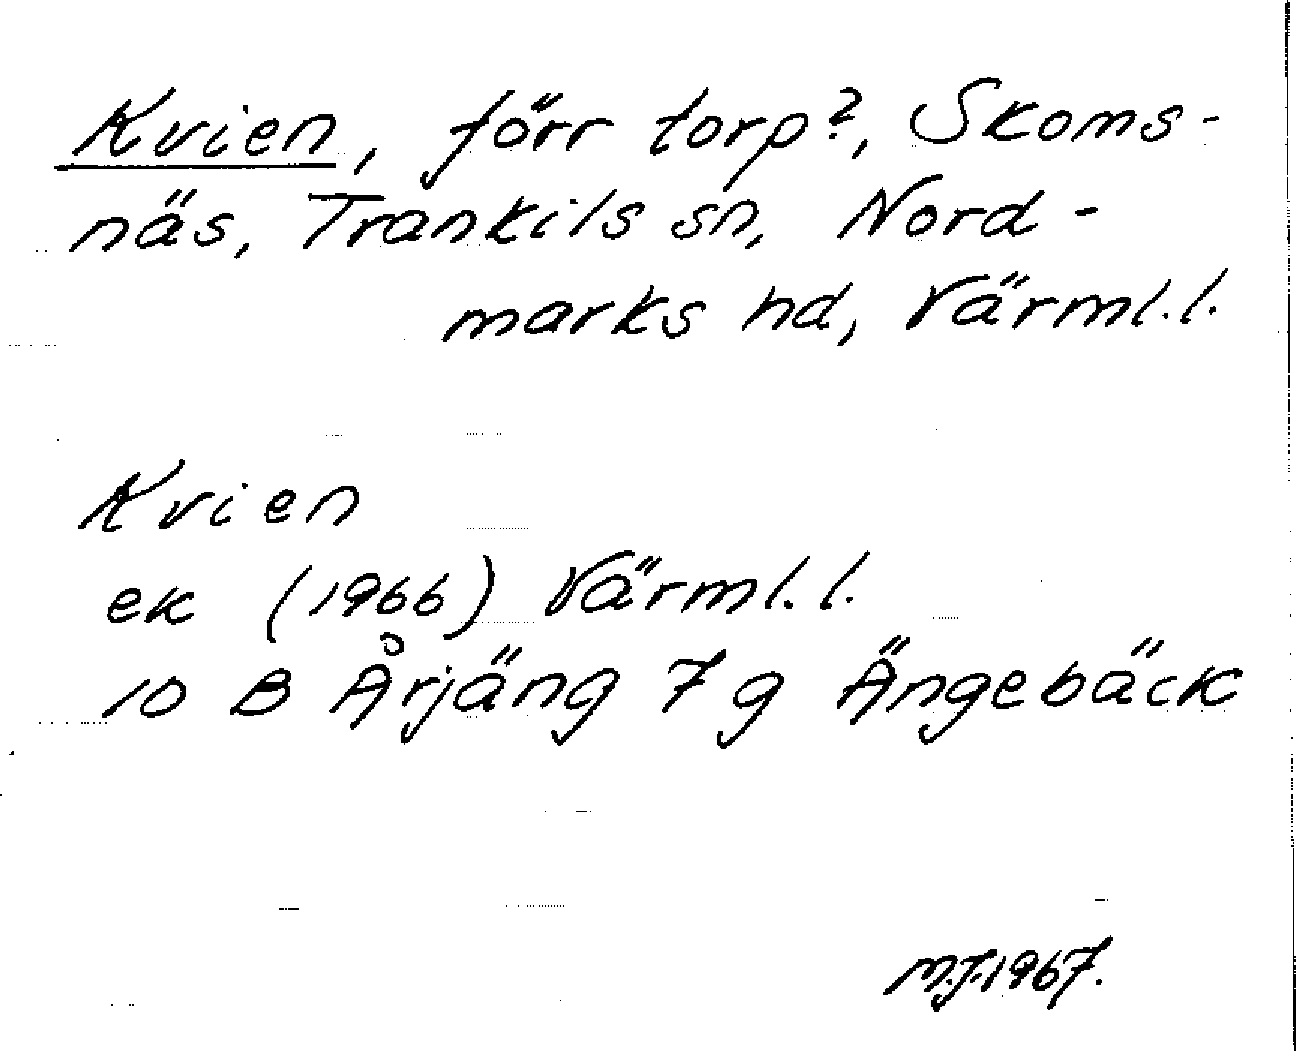 Kvien, förr torp?, Skoms-
näs, Trankils sn, Nord-
marks hd, Värml.l.
Kvien
ek (1966) Värml.l.
10 B Årjäng 7g Ängebäck
M.J.1967.